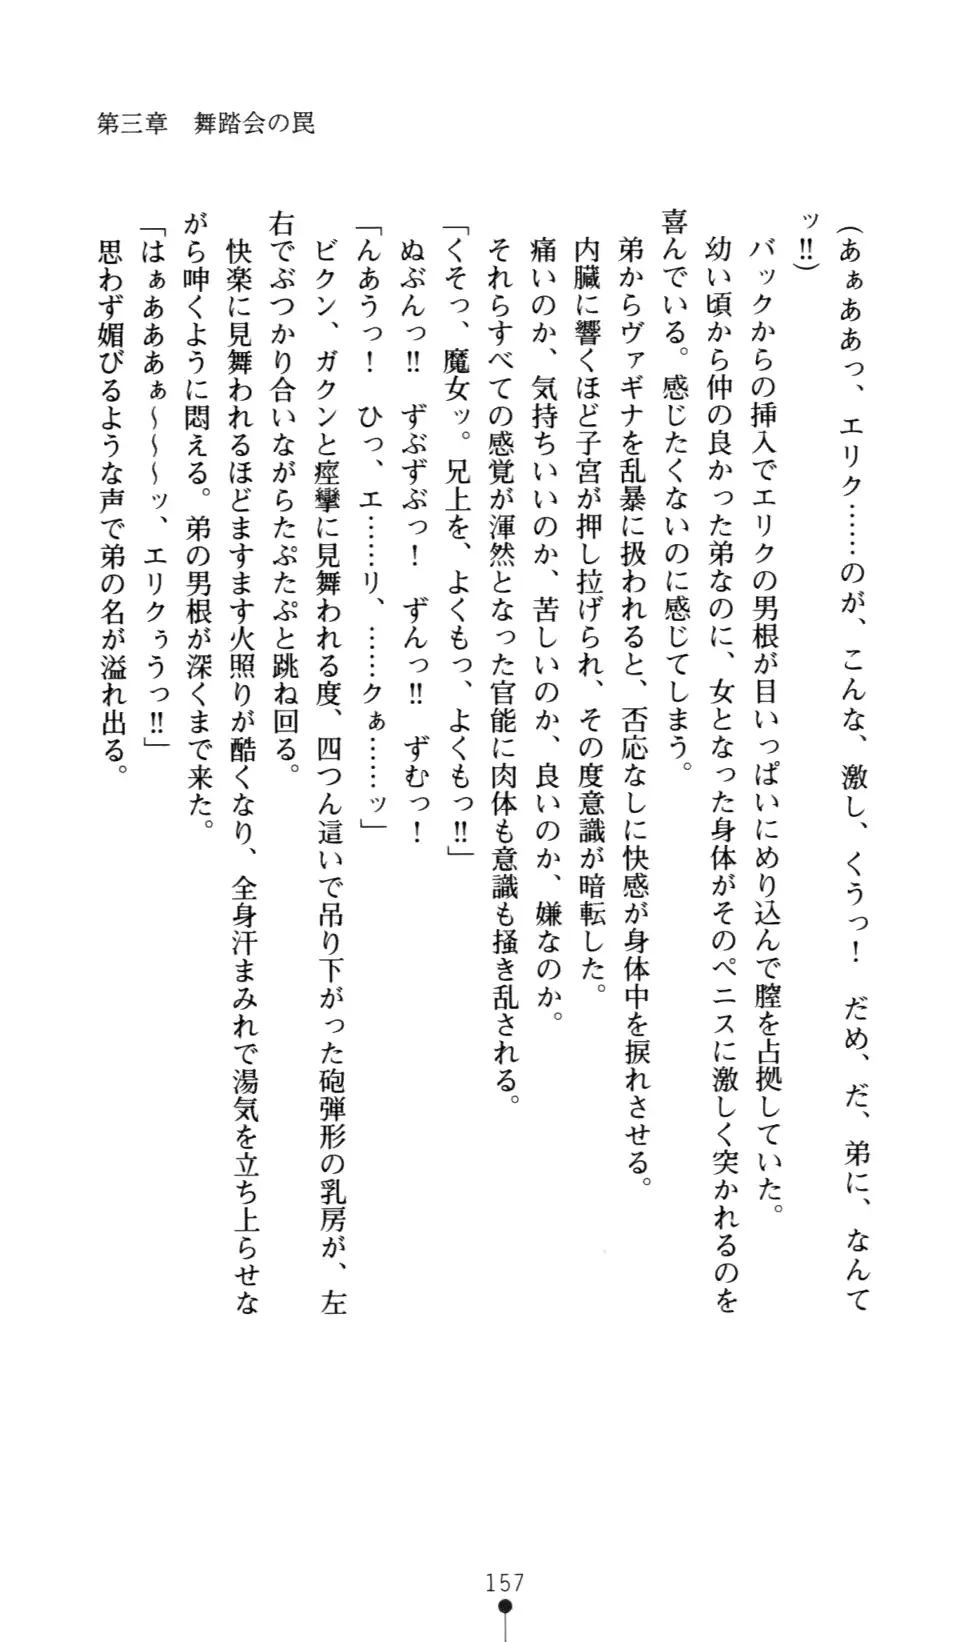 第三章　舞踏会の罠
(あぁああっ、エリク……のが、こんな、激し、くうっ！　だめ、だ、弟に、なんて
ッ!!)
バックからの挿入でエリクの男根が目いっぱいにめり込んで膣を占拠していた。
幼い頃から仲の良かった弟なのに、女となった身体がそのペニスに激しく突かれるのを
喜んでいる。感じたくないのに感じてしまう。
弟からヴァギナを乱暴に扱われると、否応なしに快感が身体中を捩れさせる。
内臓に響くほど子宮が押し拉げられ、その度意識が暗転した。
痛いのか、気持ちいいのか、苦しいのか、良いのか、嫌なのか。
それらすべての感覚が渾然となった官能に肉体も意識も掻き乱される。
「くそっ、魔女ッ。兄上を、よくもっ、よくもっ!!」
ぬぶんっ!!　ずぶずぶっ！　ずんっ!!　ずむっ！
「んあうっ！　ひっ、エ……リ、……クぁ……ッ」
ビクン、ガクンと痙攣に見舞われる度、四つん這いで吊り下がった砲弾形の乳房が、左
右でぶつかり合いながらたぷたぷと跳ね回る。
快楽に見舞われるほどますます火照りが酷くなり、全身汗まみれで湯気を立ち上らせな
がら呻くように悶える。弟の男根が深くまで来た。
「はぁあああぁ～～～ッ、エリクぅうっ!!」
思わず媚びるような声で弟の名が溢れ出る。
157